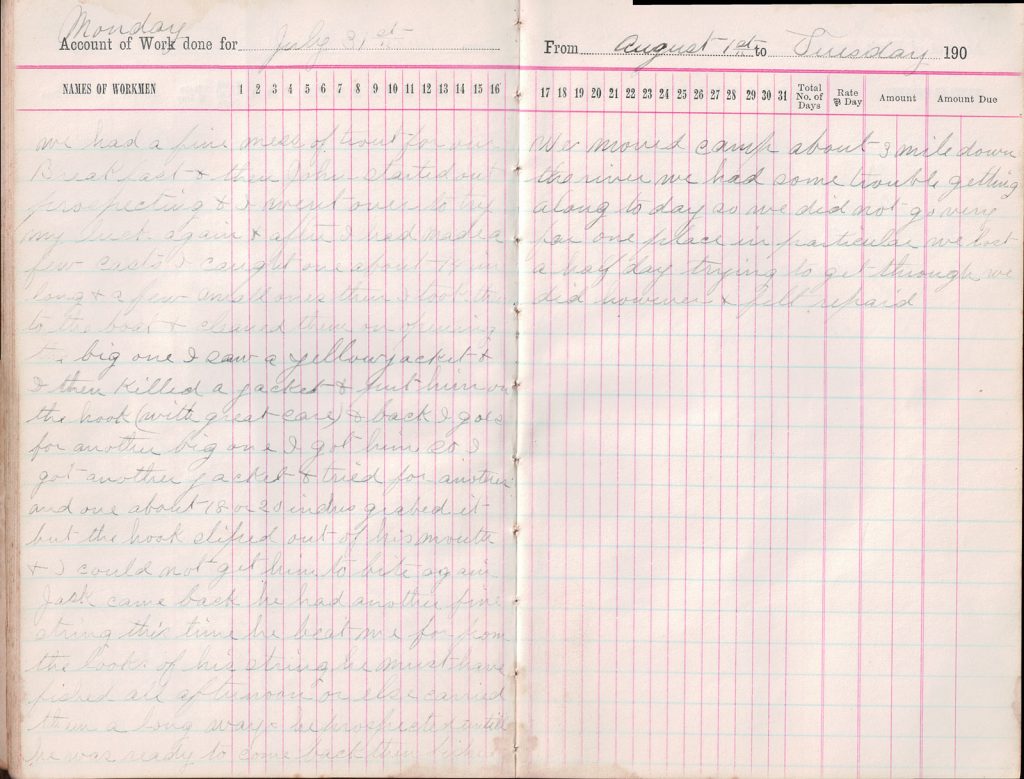 Monday
Account of Work done for July 31st
NAMES OF WORKMEN 1 2 3 4 5 6 7 8 9 10 11 12 13 14 15 16
we had a fine mess of trout for our
Breakfast & then John started out
prospecting & I went over to try
my luck again & after I had made a
few casts I caught one about 19 in
long & a few small ones then I took them
to the boat & cleaned them on opening
the big one I saw a yellow jacket &
I then killed a jacket & put him on
the hook (with great care) & back I goes
for another big one I got him so I
got another jacket & tried for another
and one about 18 or 20 inches grabed it
but the hook sliped out of his mouth
& I could not get him to bite again
Jack came back he had another fine
string this time he beat me for from
the looks of his string he must have
fished all afternoon or else carried
them a long ways he prospected untill
he was ready to come back then
From August 1st to Tuesday 190
17 18 19 20 21 22 23 24 25 26 27 28 29 30 31 Total No. of Days Rate ⅌ Day Amount Amount Due
We moved camp about 3 mile down
the river we had some trouble getting
along to day so we did not go very
far one place in particular we lost
a half day trying to get through we
did however & felt repaid